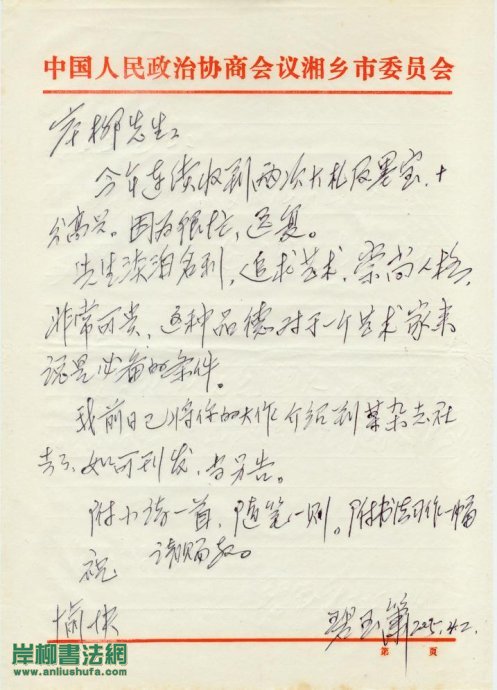 中国人民政治协商会议湘乡市委员会
岸柳先生：
今年连续收到两次大札及墨宝，十
分高兴。因为很忙，迟复。
先生淡泊名利，追求艺术，崇尚人格，
非常可贵，这种品德对于一个艺术家来
说是必备的条件。
我前日已将你的大作介绍到某杂志社
去了，如可刊发，当另告。
附小诗一首，随笔一则。附书法习作一幅
请赐教。
祝
愉快
碧玉箫 2005.4.2.
第 页
岸柳書法網
www.anliushufa.com